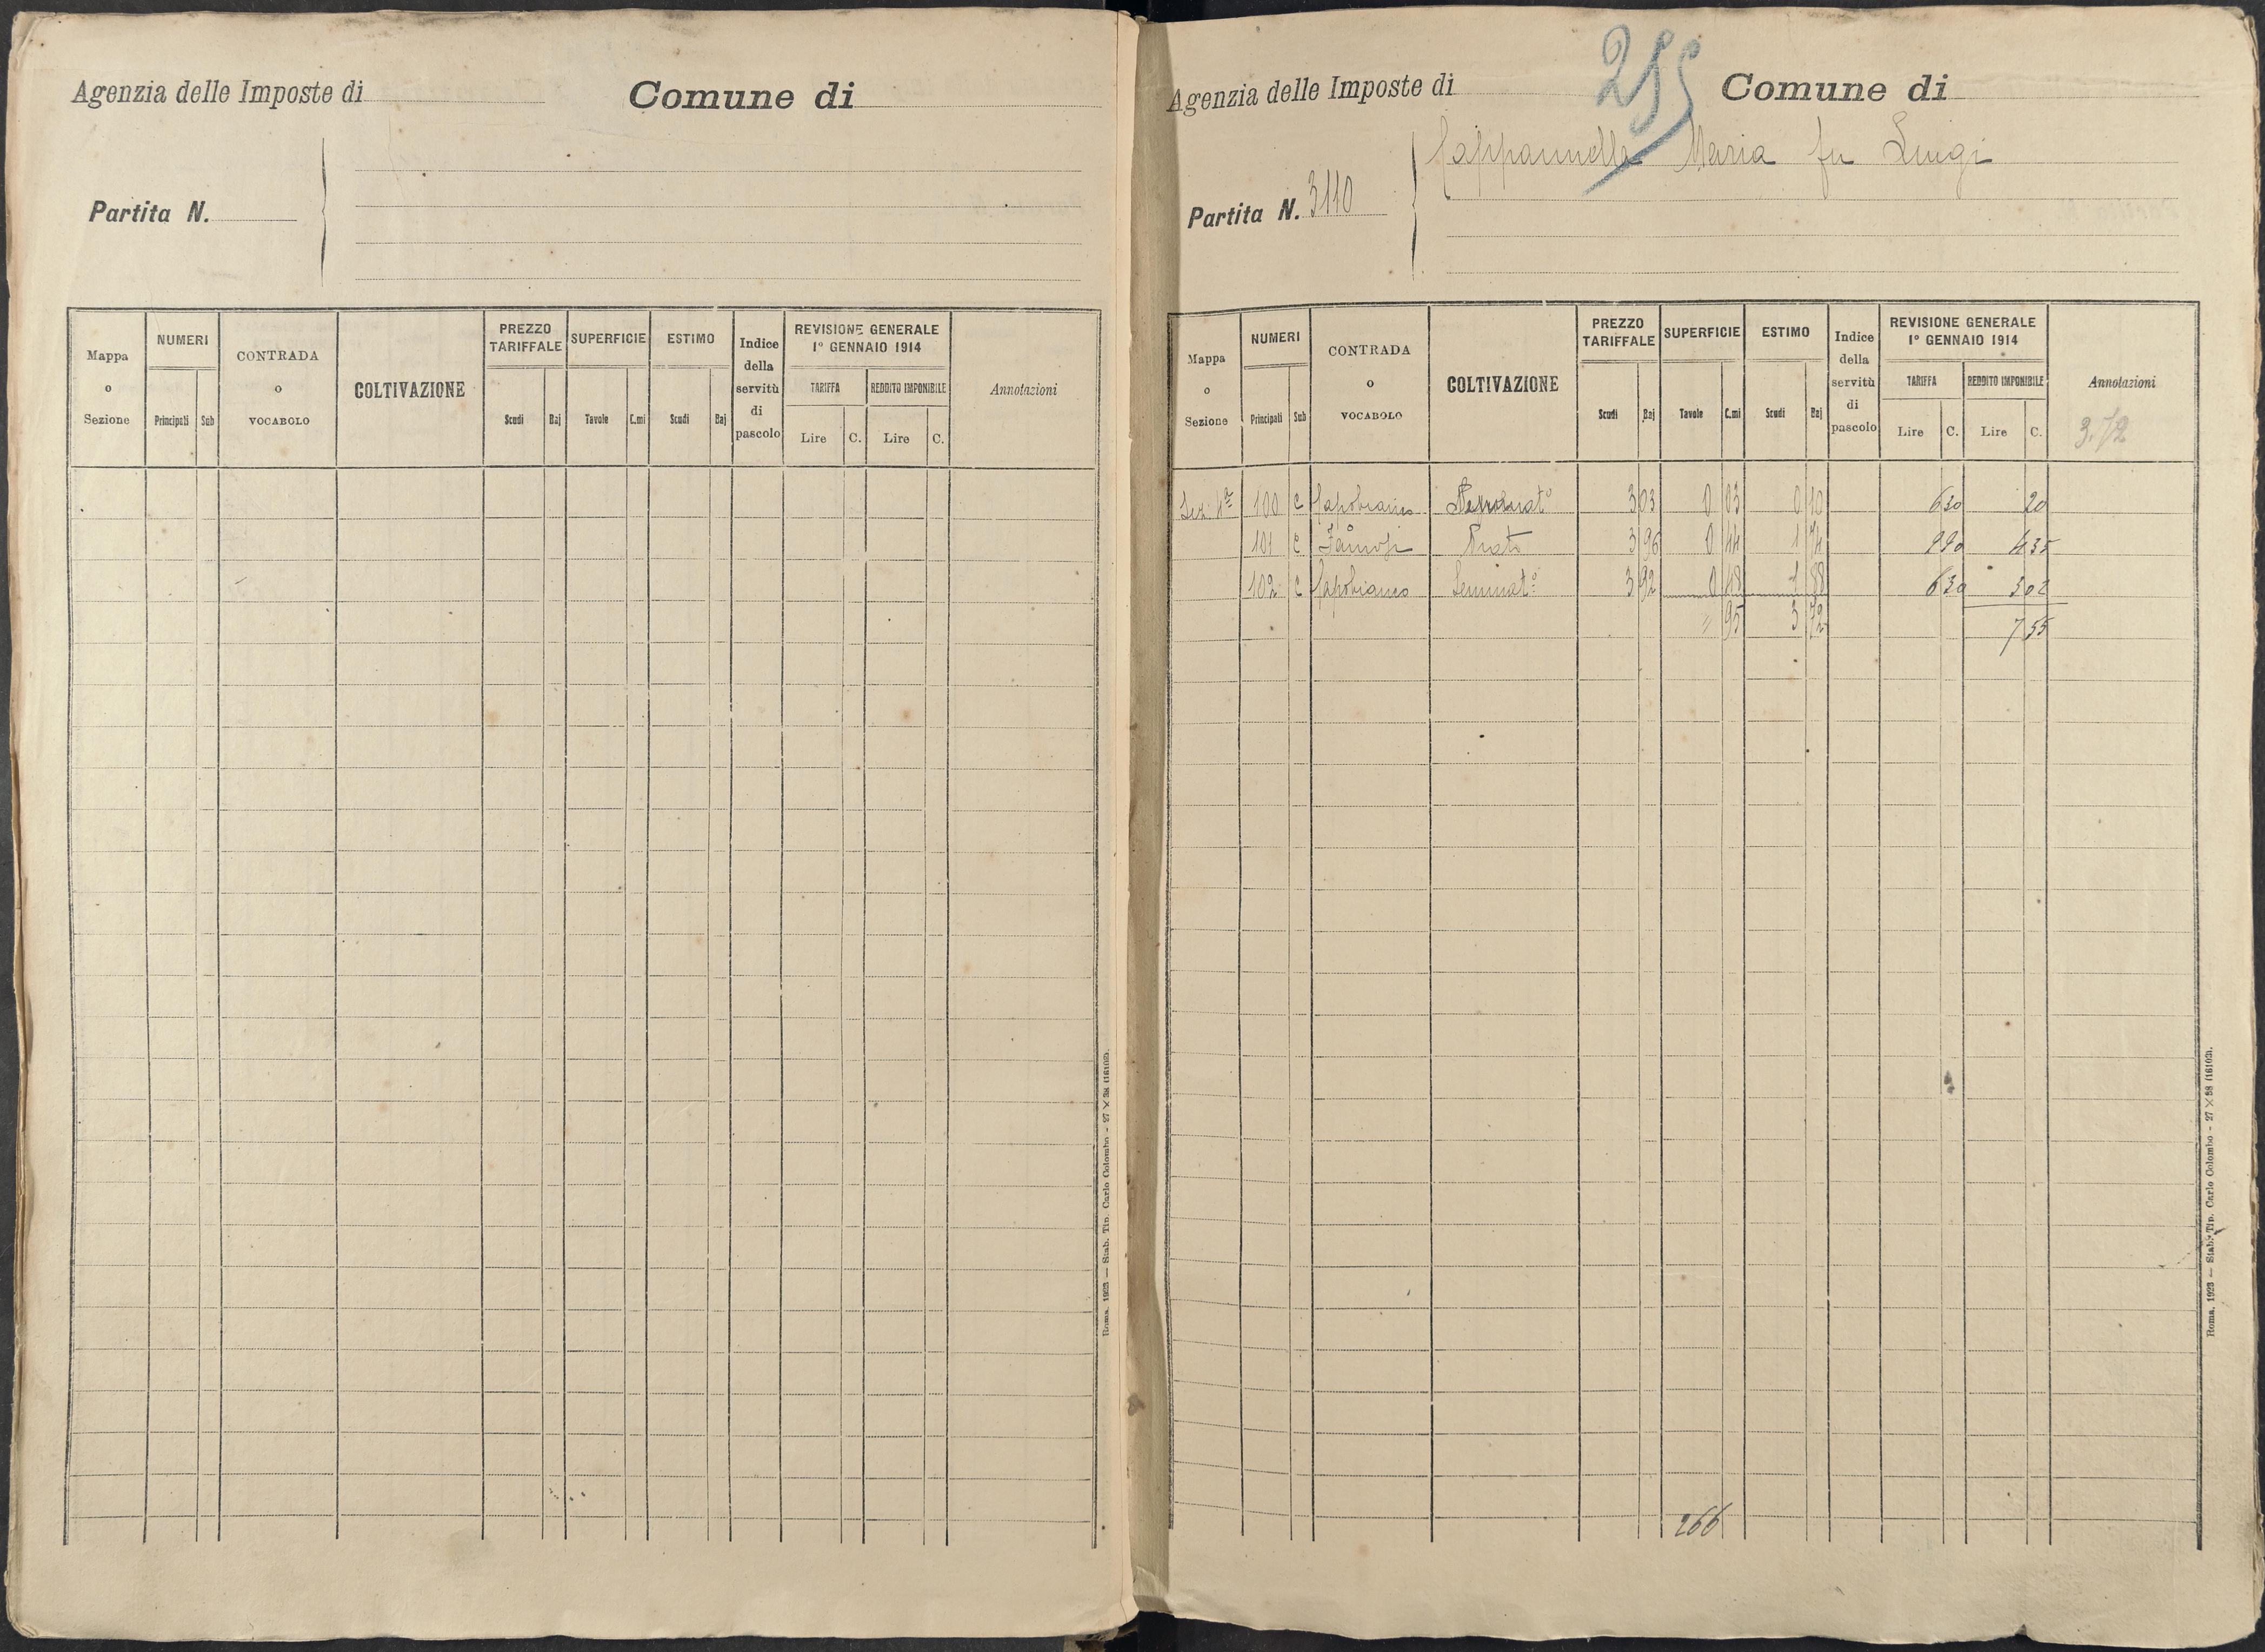 Agenzia delle Imposte di
Comune di
Partita N.
Mappa o Sezione
NUMERI
Principali
Sub
CONTRADA o VOCABOLO
COLTIVAZIONE
PREZZO TARIFFALE
Scudi
Baj
SUPERFICIE
Tavole
C.mi
ESTIMO
Scudi
Baj
Indice della servitù di pascolo
REVISIONE GENERALE
1° GENNAIO 1914
TARIFFA
REDDITO IMPONIBILE
Lire
C.
Lire
C.
Annotazioni
Roma, 1923 — Stab. Tip. Carlo Colombo - 27 × 38 (16102).
255
Agenzia delle Imposte di
Comune di
Cappannella Maria fu Luigi
Partita N. 3110
Mappa o Sezione
NUMERI
Principali
Sub
CONTRADA o VOCABOLO
COLTIVAZIONE
PREZZO TARIFFALE
Scudi
Baj
SUPERFICIE
Tavole
C.mi
ESTIMO
Scudi
Baj
Indice della servitù di pascolo
REVISIONE GENERALE
1° GENNAIO 1914
TARIFFA
REDDITO IMPONIBILE
Lire
C.
Lire
C.
Annotazioni
3.72
Sez. 1ª 100 c Capobianco 3 03 0 03 0 10 6 30 20
101 c Prato 3 96 0 44 1 74 9 90 4 35
102 c Capobianco Seminat.º 3 92 0 48 1 88 6 30 3 02
" 95 3 72 7 55
266
Roma, 1923 — Stab. Tip. Carlo Colombo - 27 × 38 (16102).